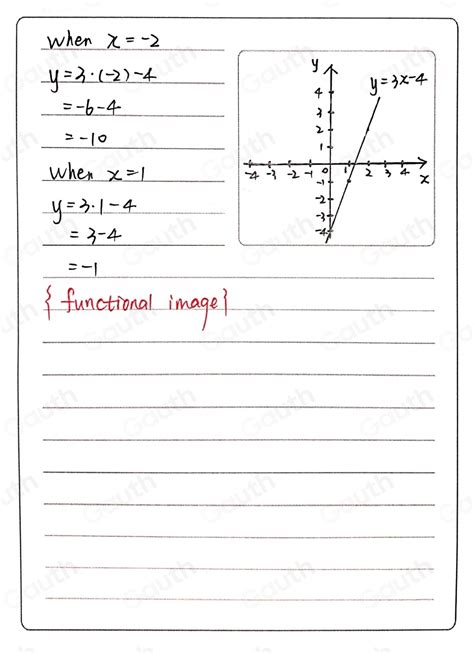 when x=-2
y=3·(-2)-4
=-6-4
=-10
when x=1
y=3·1-4
=3-4
=-1
{functional image}
y
y=3x-4
4
3
2
1
-4 -3 -2 -1 0 1 2 3 4 x
-1
-2
-3
-4
Gauth